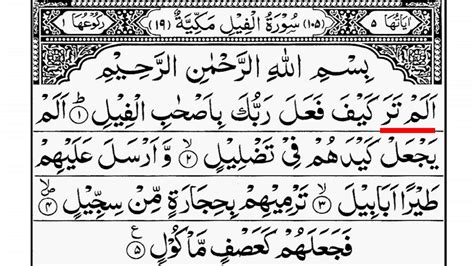 اٰيَاتُهَا ٥ (١٠٥) سُوْرَةُ الْفِيْلِ مَكِّيَّةٌ (١٩) رُكُوْعُهَا ١
بِسْمِ اللهِ الرَّحْمٰنِ الرَّحِيْمِ
اَلَمْ تَرَ كَيْفَ فَعَلَ رَبُّكَ بِاَصْحٰبِ الْفِيْلِ ۙ﴿١﴾ اَلَمْ
يَجْعَلْ كَيْدَهُمْ فِيْ تَضْلِيْلٍ ۙ﴿٢﴾ وَّ اَرْسَلَ عَلَيْهِمْ
طَيْرًا اَبَابِيْلَ ۙ﴿٣﴾ تَرْمِيْهِمْ بِحِجَارَةٍ مِّنْ سِجِّيْلٍ ۪ۙ﴿٤﴾
فَجَعَلَهُمْ كَعَصْفٍ مَّاْكُوْلٍ ﴿٥﴾ ع